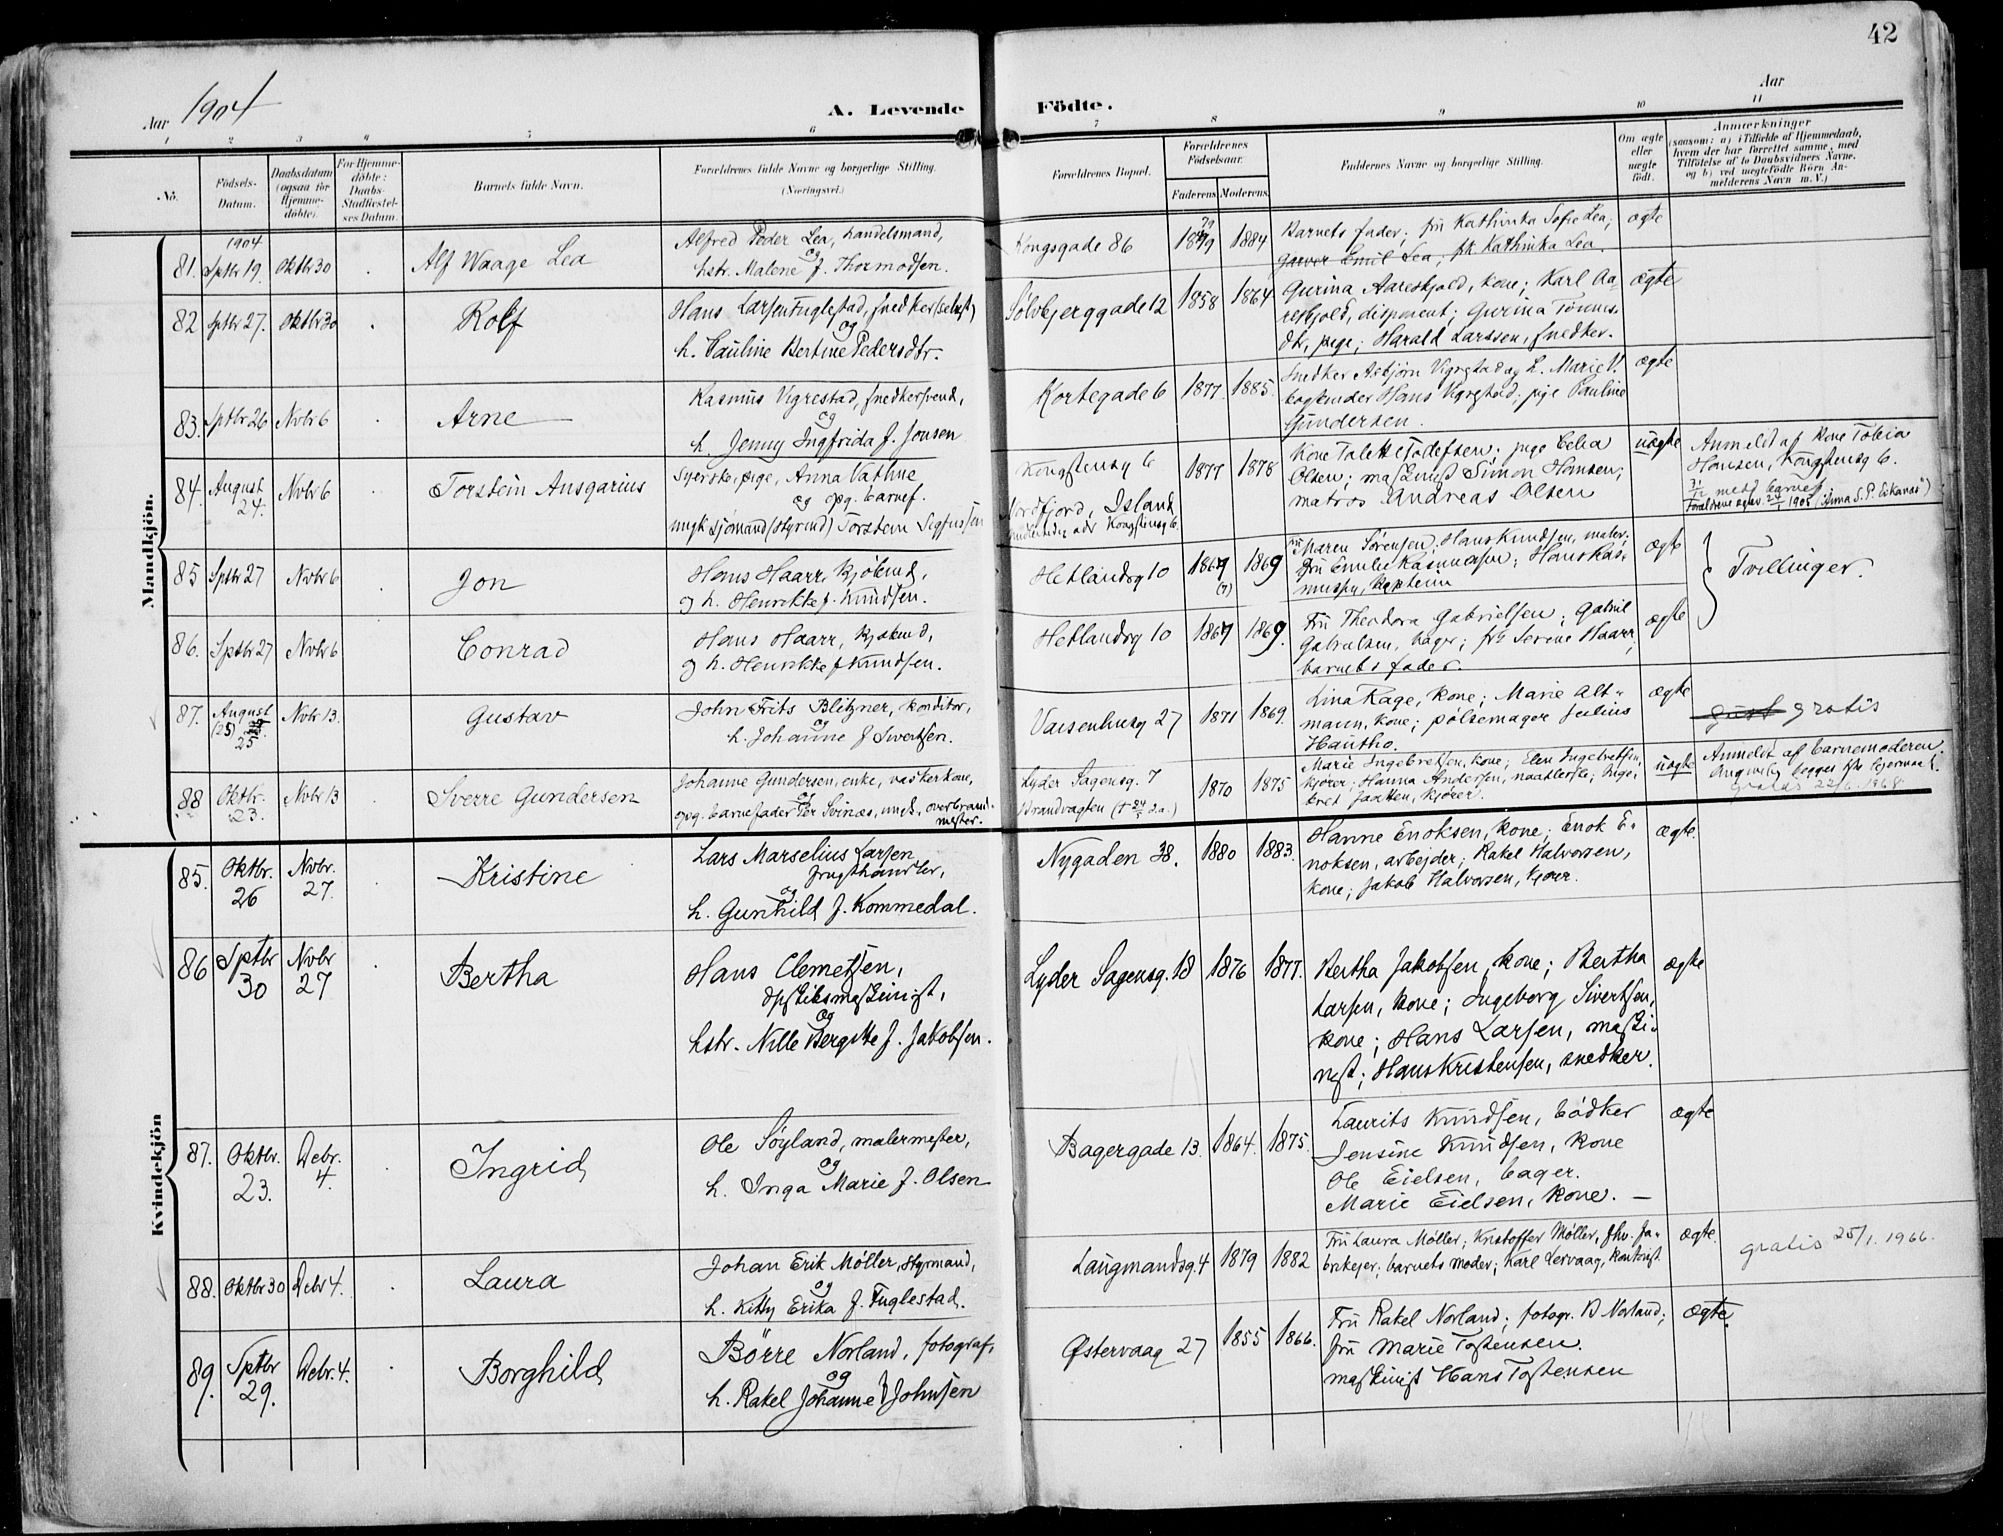 42
Aar 1904
A. Levende Födte.
Aar
1 2 3 4 5 6 7 8 9 10 11
No.
Födsels-Datum.
Daabsdatum (ogsaa for Hjemme-döbte).
For Hjemme-döbte: Daabs-Stadfæstel-ses Datum.
Barnets fulde Navn.
Forældrenes fulde Navne og borgerlige Stilling. (Næringsvei.)
Forældrenes Bopæl.
Forældrenes Födselsaar.
Faderens. Moderens.
Faddernes Navne og borgerlige Stilling.
Om ægte eller uægte födt.
Anmærkninger
(saasom: a) i Tilfælde af Hjemmedaab,
hvem der har forrettet samme, med
Tilföielse af to Daabsvidners Navne.
og b) ved uægtefödte Börn An-
melderens Navn m. V.)
Mandkjön.
81. 1904 Sptbr 19. Oktbr 30 Alf Waage Lea
Alfred Peder Lea, handelsmand,
og
hstr. Malene f. Thormodsen.
Kongsgade 86 1879 1884
Barnets fader; fru Kathinka Sofie Lea;
garver Emil Lea; frk. Kathinka Lea.
ægte
82 Sptbr 27. Oktbr 30 Rolf
Hans Larsen Fuglestad, snedker (selvst)
og
h. Pauline Bertine Pedersdtr.
Sølvbjerggade 12 1858 1864
Gurina Aareskjold, kone; Karl Aa
reskjold, disponent; Gurina Tønnes-
dtr, pige; Harald Larssen, snedker.
ægte
83. Sptbr 26 Nvbr 6 Arne
Rasmus Vigrestad, snedkersvend,
og
h. Jenny Ingfrida f. Jonsen
Kortegade 6 1877. 1885.
Snedker Asbjørn Vigrestad og h. Marie V.
Hans Vigrestad; pige Pauline
Gundersen.
ægte
84. August 24. Nvbr 6 Torstein Ansgarius
Syerske, pige, Anna Vathne
og opg. barnef.
ungk. sjømand (styrmd) Torstein Sigfussen
Kongstensg 6
Nordfjord, Island
1877 1878
Kone Talette Todefsen; pige Celia
Olsen; maskinist Simon Hansen;
matros Andreas Olsen
uægte
Anmeldt af kone Tobia
Hansen, Kongstensg 6.
85 Sptbr 27 Nvbr 6 Jon
Hans Haarr, kjøbmd,
og h. Henrikke f. Knudsen.
Hetlandsg 10 1867 (7) 1869
fru Maren Sørensen; Hans Knudsen, maler;
fru Emilie Rasmussen; Hans Ras-
mussen, kaptein
ægte
Tvillinger.
86. Sptbr 27 Nvbr 6 Conrad
Hans Haarr, kjøbmd,
og h. Henrikke f Knudsen.
Hetlandsg 10 1867 1869.
Fru Theodora Gabrielsen; Gabriel
Gabrielsen, bager; frk Serine Haarr;
barnets fader.
ægte
87. August (25) 25 Nvbr 13. Gustav
John Frits Blitzner, konditor,
og
h. Johanne f Sivertsen.
Vaisenhusg 27 1871 1869.
Lina Rage, kone; Marie Alt-
mann, kone; pølsemager Julius
Hautho.
ægte
gratis
88 Oktbr. 23. Nvbr 13 Sverre Gundersen
Johanne Gundersen, enke, vaskerkone,
og
opg. barnefader Per Svinæs, ungk., overbrand-
mester.
Lyder Sagensg. 7
Brandvagten
1870 1875
Marie Ingebretsen, kone; Elen Ingebretsen,
kjører; Hanna Andersen, naadlerske; Inge-
bret Jaatten, kjører.
uægte
Anmeldt af barnemoderen.
gratis 22/6. 1968
Kvindekjön
85. Oktbr. 26 Nvbr. 27. Kristine
Lars Marselius Larsen
frugthandler,
og
h. Gunhild f. Kommedal.
Nygaden 38. 1880 1883.
Hanne Enoksen, kone; Enok E-
noksen, arbejder; Rakel Halvorsen,
kone; Jakob Halvorsen, kjører.
ægte
86 Sptbr 30 Nvbr 27 Bertha
Hans Clemetsen,
dpskibsmaskinist,
og
hstr. Nille Bergitte f. Jakobsen.
Lyder Sagensg. 18 1876 1877.
Bertha Jakobsen, kone; Bertha
Larsen, kone; Ingeborg Sivertsen,
kone; Hans Larsen, maski-
nist; Hans Kristensen, snedker.
ægte
87. Oktbr. 23. Debr. 4. Ingrid
Ole Søyland, malermester,
og
h. Inga Marie f. Olsen
Bagergade 13. 1864. 1875.
Laurits Knudsen, bødker
Jensine Knudsen, kone
Ole Eielsen, bager.
Marie Eielsen, kone. —
ægte
88. Oktbr 30 Debr 4. Laura
Johan Erik Møller, styrmand,
og
h. Kitty Erika f. Fuglestad.
Laugmandsg. 4 1879 1882
Fru Laura Møller; Kristoffer Møller, fhv. fa-
brikejer; barnets moder; Karl Lervaag, kontorist
ægte.
gratis 25/1. 1966.
89. Sptbr 29. Debr. 4. Borghild
Börre Norland, fotograf,
og
h. Rakel Johanne f Johnsen
Østervaag 27 1855 1866.
Fru Rakel Norland; fotogr. B Norland;
fru Marie Tostensen.
maskinist Hans Tostensen
ægte.